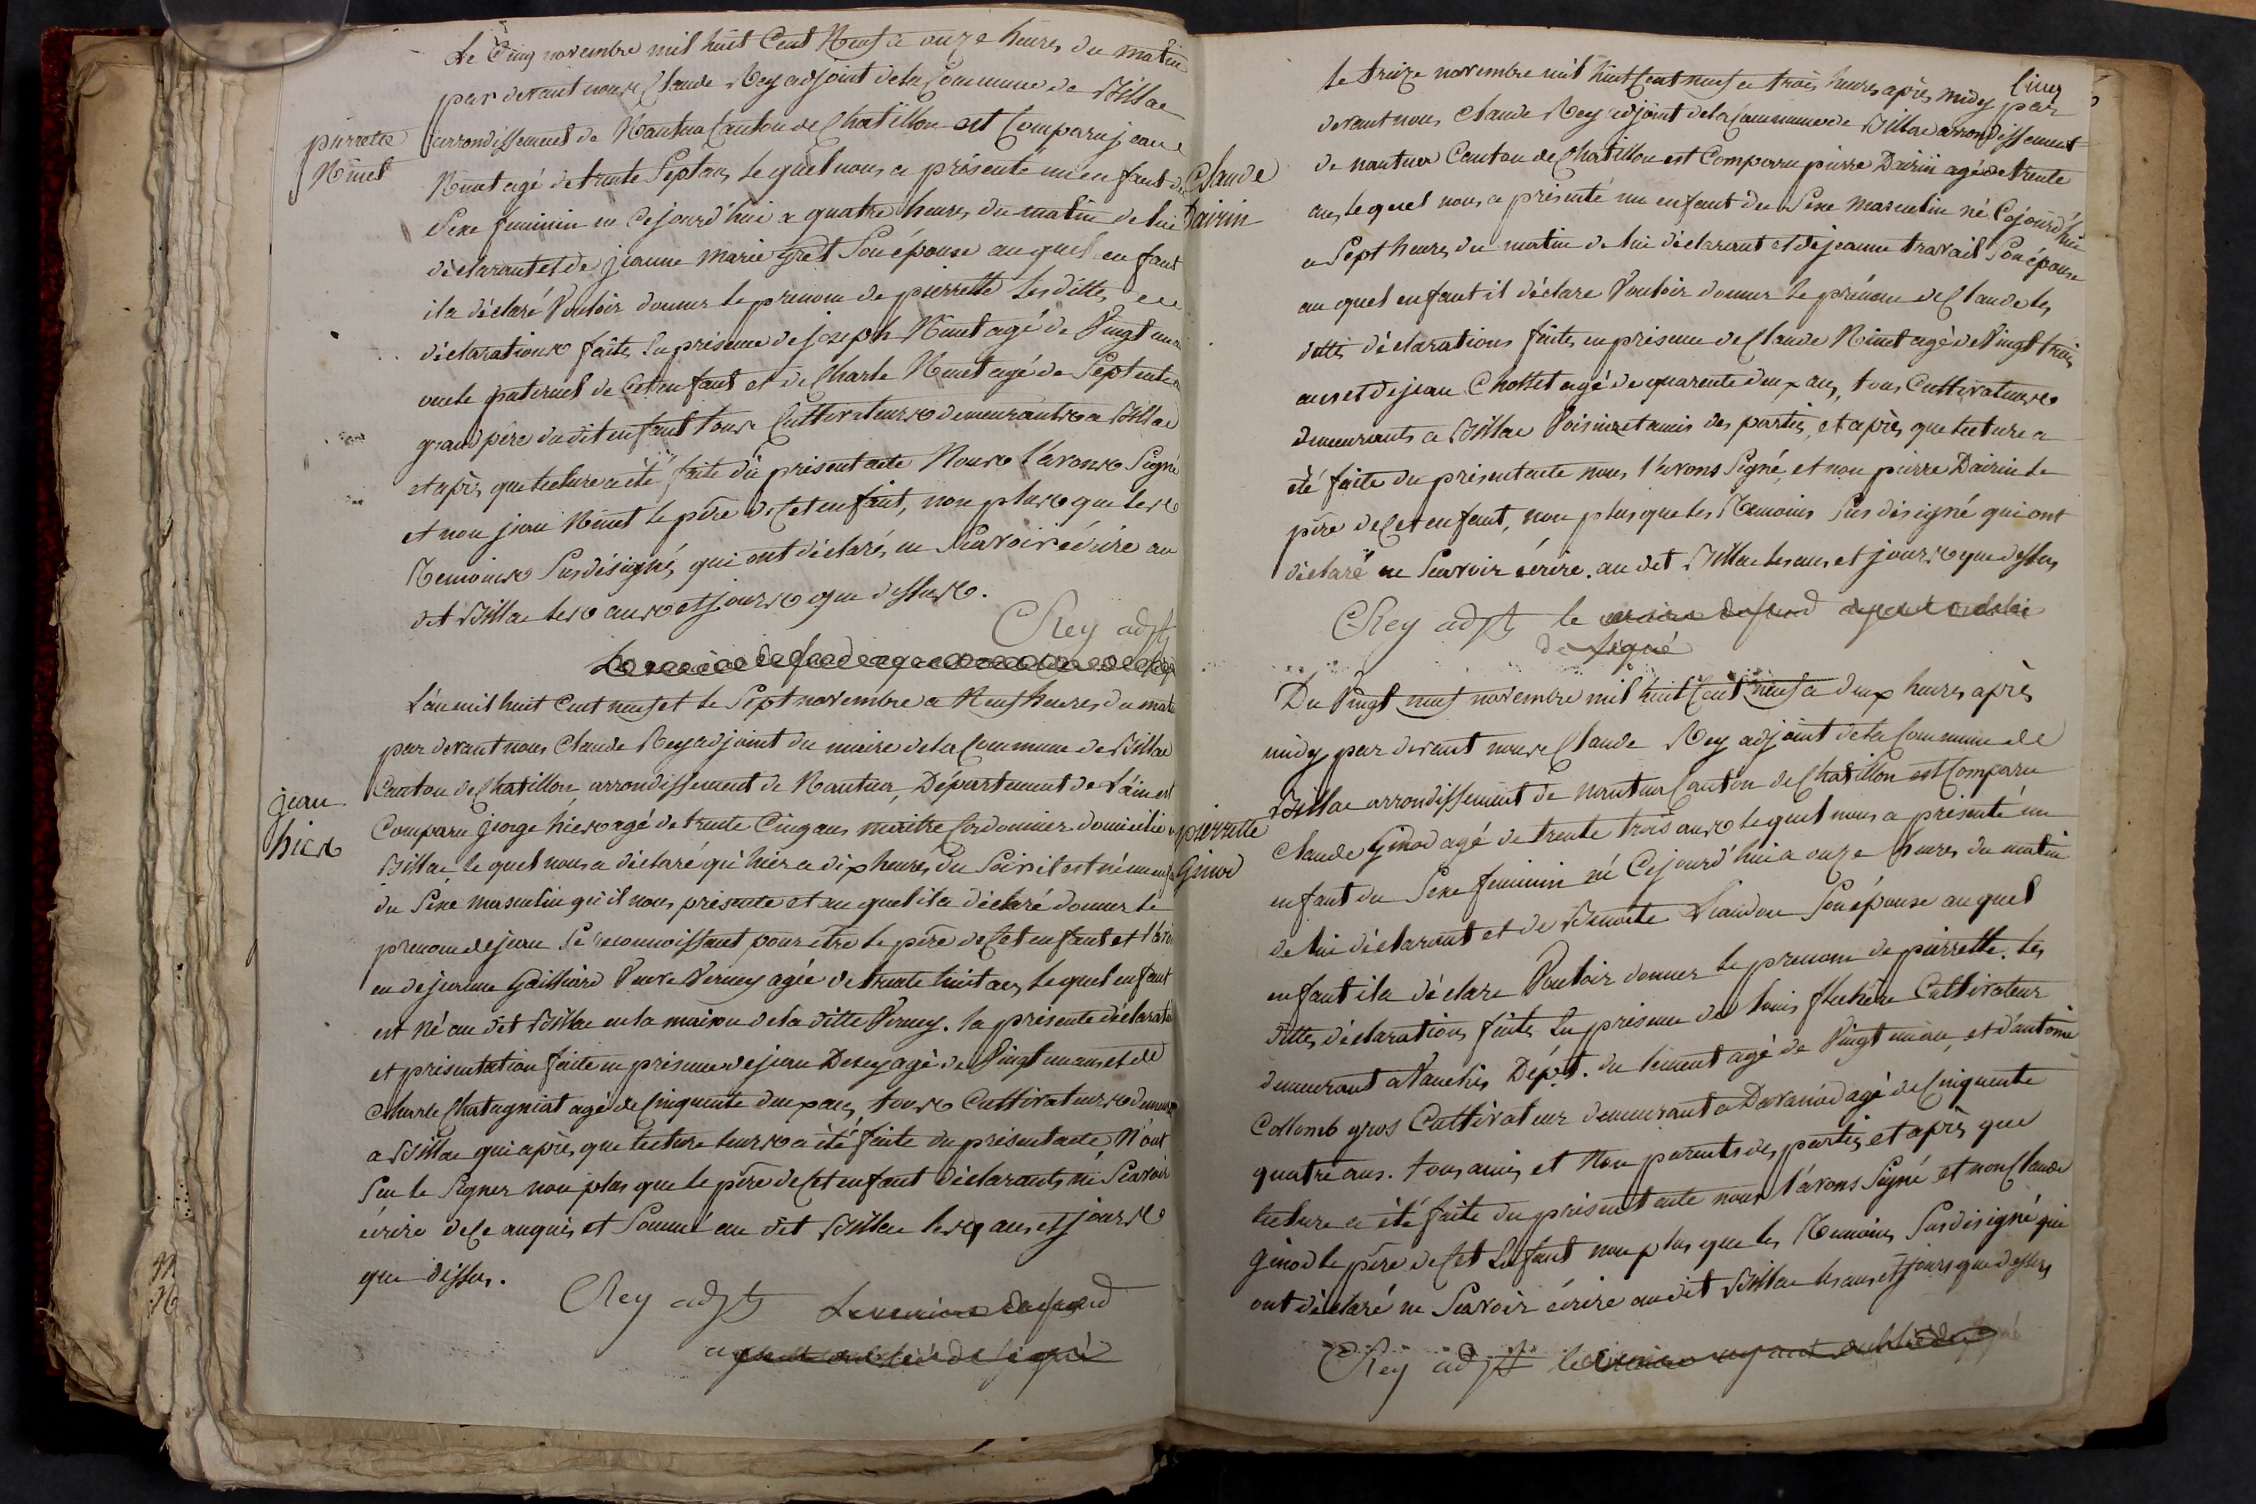 Le Cinq novembre mil huit Cent Neuf a onze heures du matin
par devant nous Claude Rey adjoint de la Commune de Billac
pierrette
Ninet
arrondissement de Nantua Canton de Chatillon est Comparu jean
Ninet agé de trente Sept ans, le quel nous a présenté un enfant du
Sexe feminin né Cejourd'hui a quatre heures du matin de lui
déclarant et de jeanne marie gret Son épouse au quel enfant
il a déclaré Vouloir donner le prenom de pierrette Les dittes
déclarations faites En présence de joseph Ninet agé de Vingt
oncle paternel de Cet enfant et de Charle Ninet agé de Septente
grand père du dit enfant tous Cultivateurs demeurants a Billac
et après que lecture a été faite du présent acte Nous l'avons Signé
et non jean Ninet le père de Cet enfant, non plus que les
Temoins Susdésignés, qui ont déclarés ne Scavoir écrire au
dit Billac les ans et jours que dessus.
CRey adjt
L'an mil huit Cent neuf et le Sept novembre a Neuf heures du matin
par devant nous Claude Rey adjoint du maire de la Commune de Billac
Canton de Chatillon, arrondissement de Nantua, Département de L'ain est
jean
hier
Comparu george hier agé de trente Cinq ans maitre Cordonnier domicilié a
Billac le quel nous a déclaré qu'hier a dix heures du Soir il est né un enfant
du Sexe masculin qu'il nous présente et au quel il a déclaré donner le
prenom de jean Se reconnoissant pour être le père de Cet enfant et l'avoir
eu de jeanne gaillard Veuve Verney agée de trente huit ans, le quel enfant
est né au dit Billac en la maison de la ditte Verney. la présente déclaration
et présentation faite en présence de jean Derey agé de Vingt un ans et de
Charle Chatagniat agé de Cinquente deux ans, tous Cultivateurs demeurants
a Billac qui après que lecture leurs a été faite du présent acte N'ont
Seu le Signer non plus que le père de Cet enfant déclarants ne Scavoir
écrire de Ce anquis et Sommé au dit Billac les ans et jours
que dessus.
CRey adjt Le maire Dufond
ayant oublié de signé
Cinq
Le treize novembre mil huit Cent neuf a trois heures après midy par
devant nous Claude Rey adjoint de la Commune de Billac arrondissement
de nantua Canton de Chatillon est Comparu pierre Dairin agé de trente
Claude
Dairin
ans, le quel nous a présenté un enfant du Sexe masculin né Cejourd'hui
a Sept heures du matin de lui déclarant et de jeanne travail Son épouse
au quel enfant il déclare Vouloir donner le prénom de Claude les
dittes déclarations faites en présence de Claude Ninet agé de Vingt trois
ans et de jean Chollet agé de quarente deux ans, tous Cultivateurs
demeurants a Billac Voisins et amis des parties, et après que lecture a
été faite du présent acte nous l'avons Signé, et non pierre Dairin le
père de Cet enfant, non plus que les Temoins Sus désigné qui ont
déclaré ne Scavoir écrire. au dit Billac les ans et jours que dessus
CRey adjt le maire dufond ayant oublié
de signé
Du Vingt neuf novembre mil huit Cent neuf a deux heures après
midy par devant nous Claude Rey adjoint de la Commune de
Billac arrondissement de nantua Canton de Chatillon est Comparu
pierrette
Ginod
Claude Ginod agé de trente trois ans le quel nous a présenté un
enfant du Sexe feminin né Cejourd'hui a onze heures du matin
de lui déclarant et de Benoite Son épouse au quel
enfant il a déclare Vouloir donner le prenom de pierrette. les
dittes déclarations faites En présence de louis fluchère Cultivateur
demeurant a Vanchis Dépt. du lement agé de Vingt un an, et d'antoine
Collomb gros Cultivateur demeurant a Davanod agé de Cinquente
quatre ans. tous amis, et Non parents des parties, et après que
lecture a été faite du présent acte nous l'avons Signé et non Claude
ginod le père de Cet Enfant non plus que les Temoins Susdésigné qui
ont déclaré ne Scavoir écrire au dit Billac les ans et jours que dessus
CRey adjt le maire ayant oublié de signé